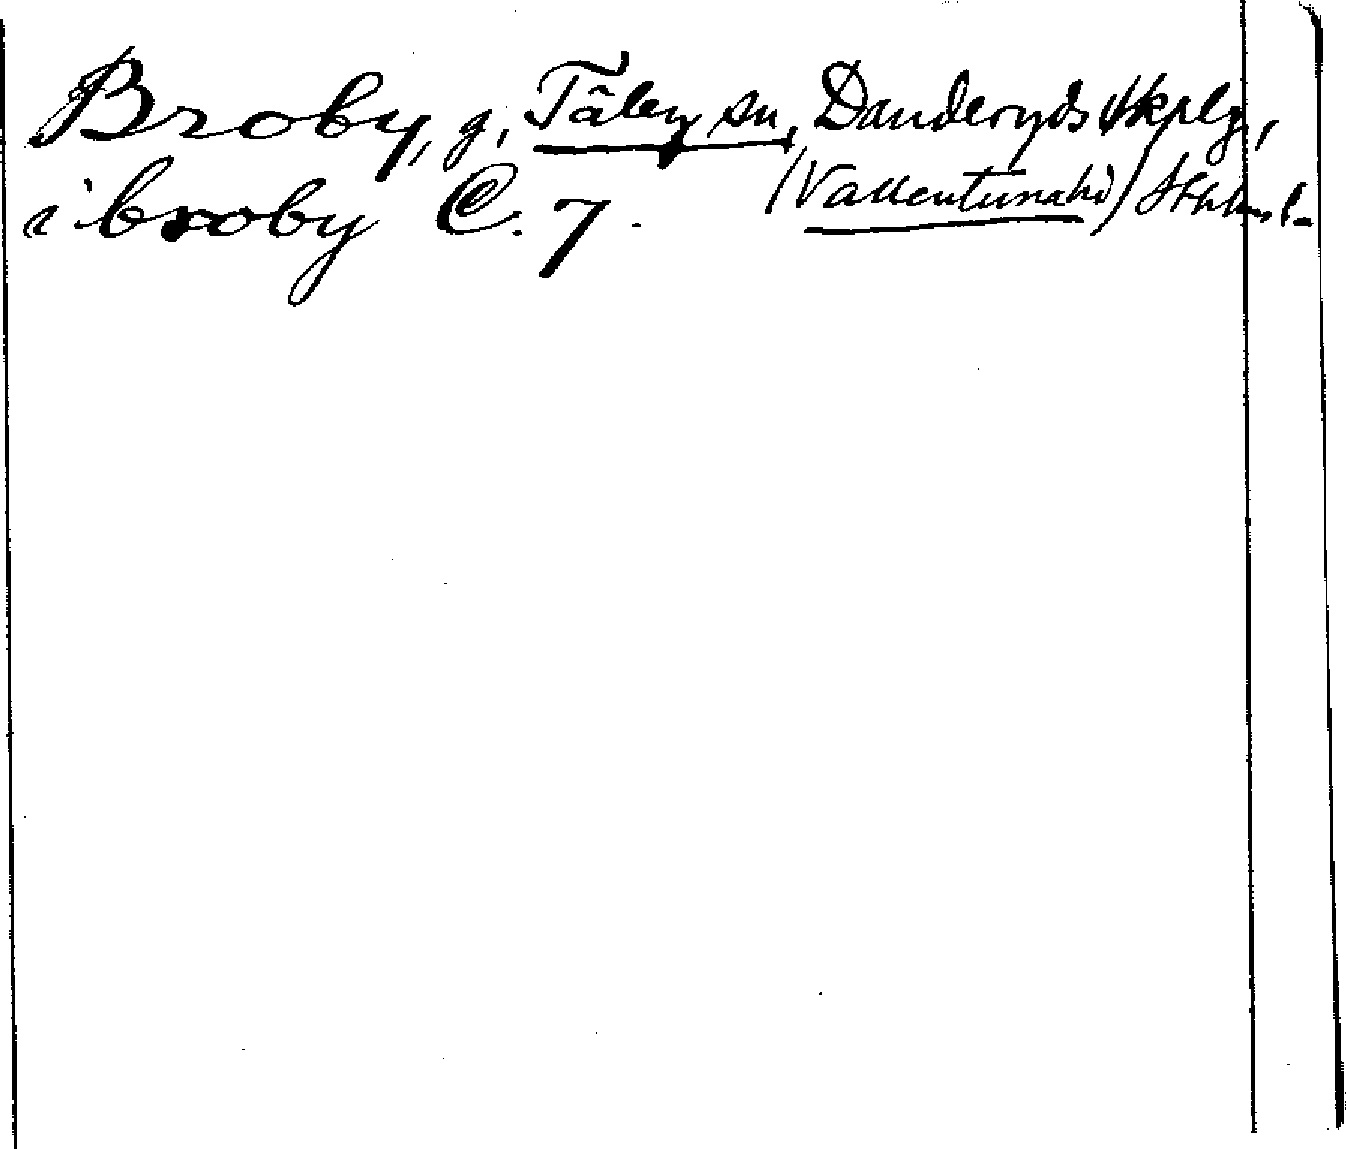 Broby, g, Täby sn, Danderyds skplg,
i broby C. 7. (Vallentuna hd) Sthlms l.